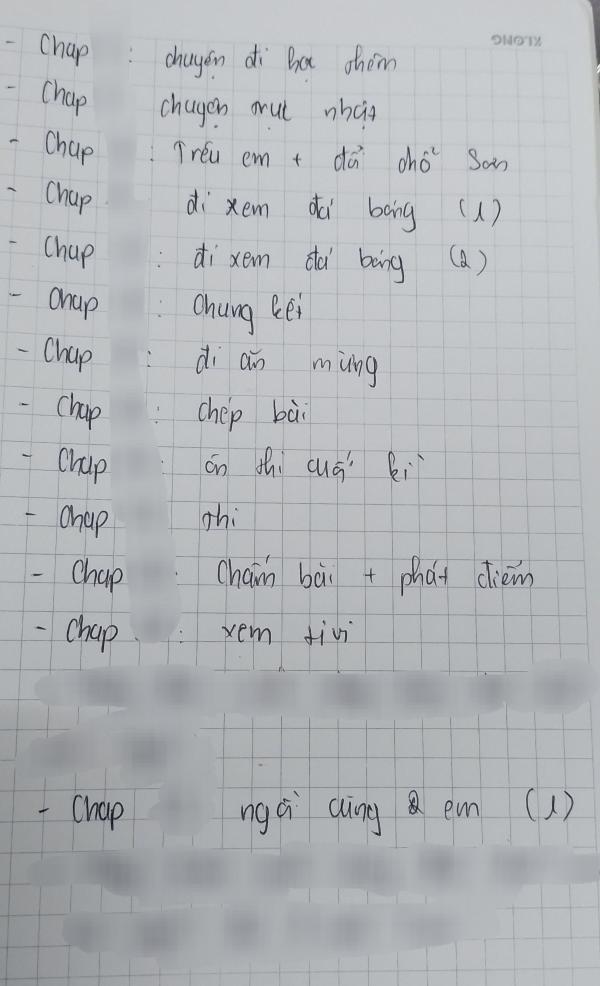 KLONG
- Chap : chuyện đi học thêm
- Chap chuyện trực nhật
- Chap : Trêu em + đá
- Chap đi xem đá bóng (1)
- Chap : đi xem đá bóng (2)
- Chap : Chung kết
- Chap : đi ăn mừng
- Chap : chép bài
- Chap : ôn thi cuối kì
- Chap thi
- Chap : Chấm bài + phát điểm
- Chap : xem tivi
- Chap cùng 2 em (1)